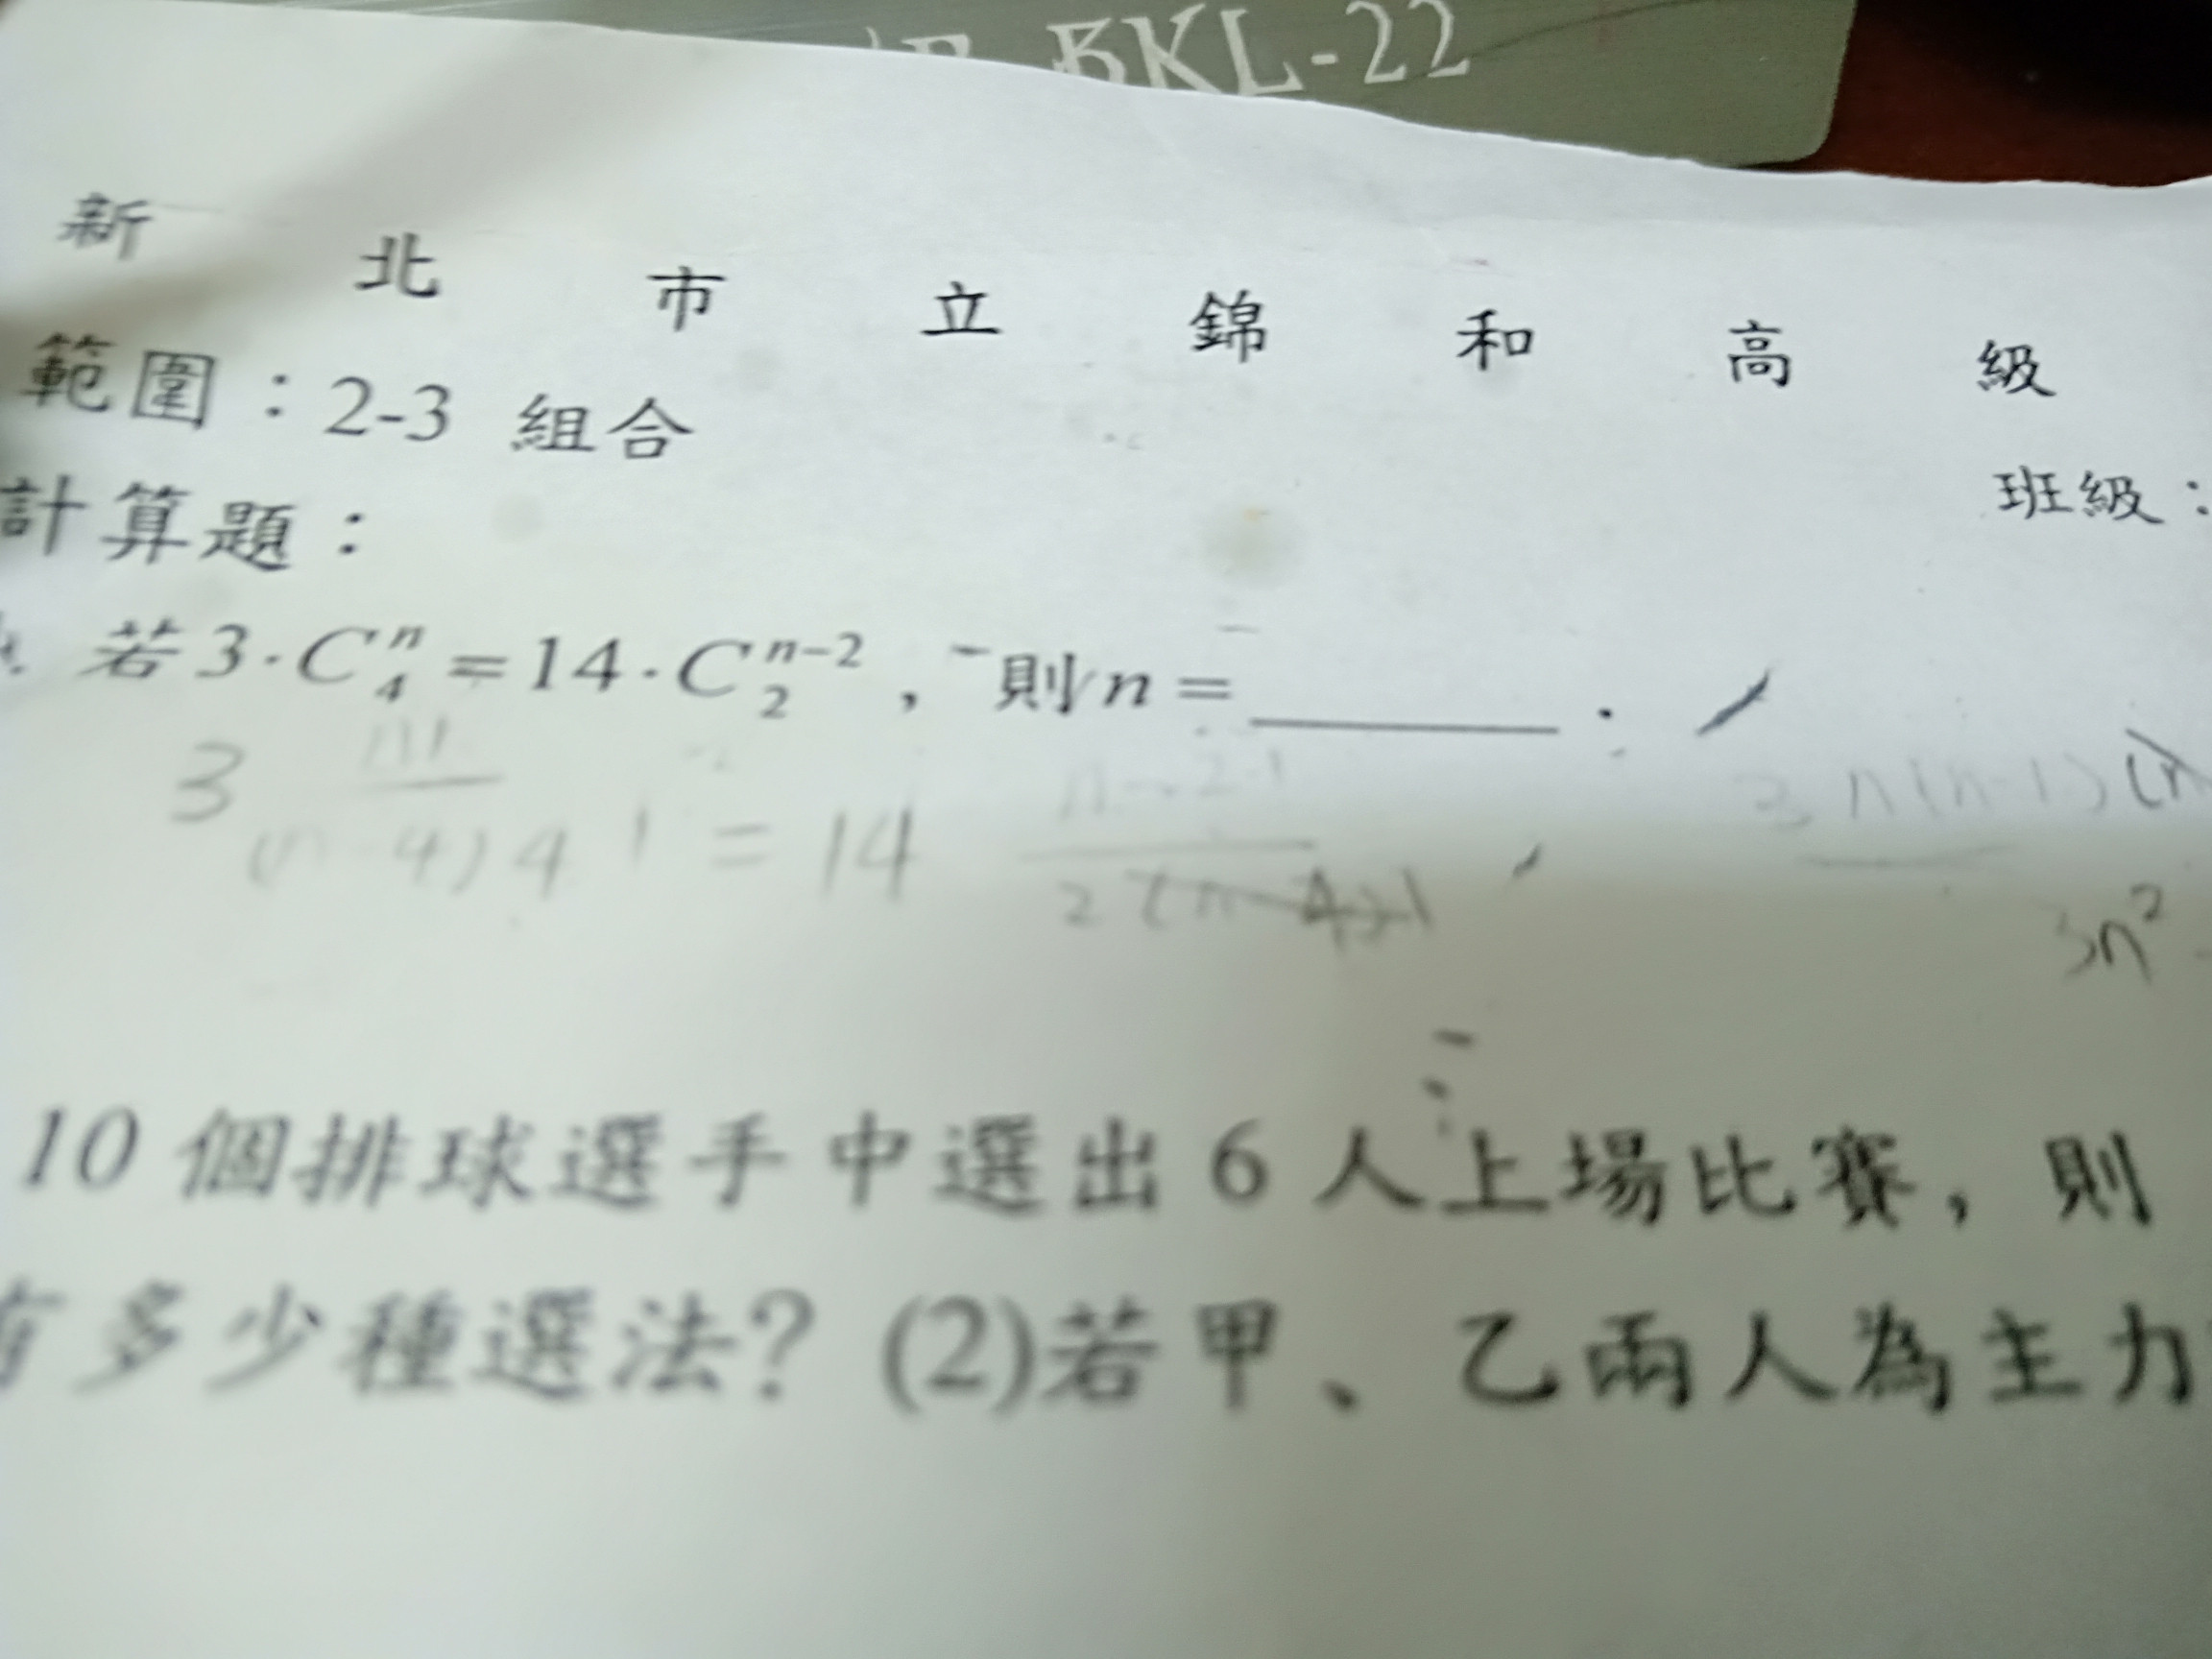 BKL-22
新北市立錦和高級
範圍：2-3 組合
班級：
計算題：
若 3·C₄ⁿ = 14·C₂ⁿ⁻²，則 n = ______.
3 (n-4) 4! = 14
3n²
10 個排球選手中選出 6 人上場比賽，則
有多少種選法? (2)若甲、乙兩人為主力